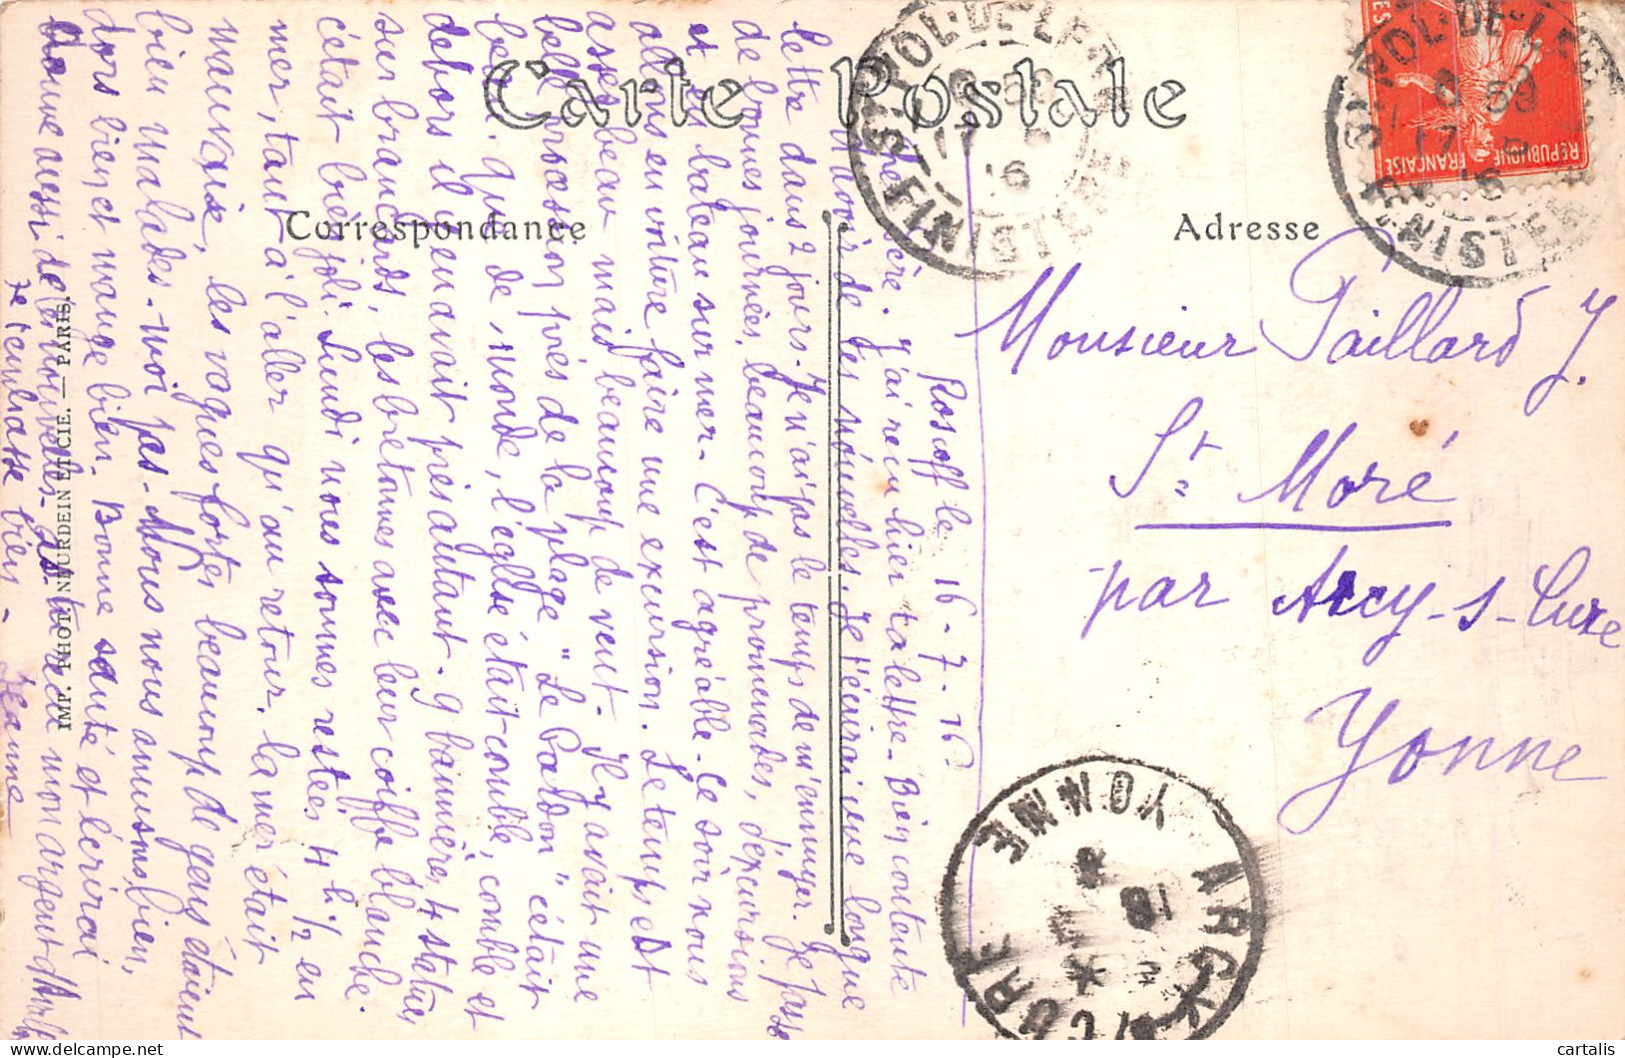 Carte Postale
Correspondance
Adresse
Roscoff le 16-7-16
J'ai reçu hier ta lettre. Bien contente
d'avoir de tes nouvelles. Je t'écrirai une longue
lettre dans 2 jours. Je n'ai pas le temps de m'ennuyer. Je passe
de bonnes journées, beaucoup de promenades, d'excursions
et les bateau sur mer. C'est agréable. Ce soir nous
allons en voiture faire une excursion. Le temps est
assez beau mais beaucoup de vent. Il y avait une
belle procession près de la plage "Le Pardon" c'était
beau. que de monde, l'église était comble, comble et
dehors il y en avait près autant. 9 bannières, 4 statues
sur brancards, les bretonnes avec leur coiffe blanche.
c'était bien joli. Lundi nous sommes restées 4h 1/2 en
mer, tant à l'aller qu'au retour. la mer était
mauvaise, les vagues fortes beaucoup de gens étaient
bien malades. moi pas. Nous nous amusons bien,
dors bien et mange bien. Bonne santé et t'écrirai
donne aussi de tes nouvelles. as-tu reçu mon argent
Je t'embrasse bien - Jeanne
IMP. PHOT. NEURDEIN ET CIE. — PARIS.
Monsieur Paillard J.
St Moré
par Arcy-s-Cure
Yonne
ST POL-DE-LEON
17 -
16
FINISTERE
ST POL-DE-LEON
17
16
FINISTERE
REPUBLIQUE FRANCAISE
ARCY S/ CURE
18
YONNE
cartalis sur www.delcampe.net